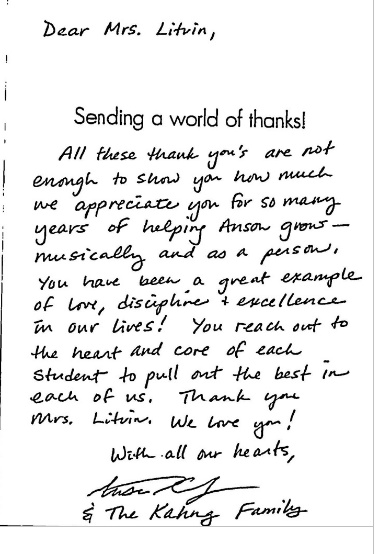 Dear Mrs. Litvin,
Sending a world of thanks!
All these thank you's are not
enough to show you how much
we appreciate you for so many
years of helping Anson grow—
musically and as a person.
You have been a great example
of love, discipline + excellence
in our lives! You reach out to
the heart and core of each
student to pull out the best in
each of us. Thank you
Mrs. Litvin. We love you!
With all our hearts,
& The Kahng Family